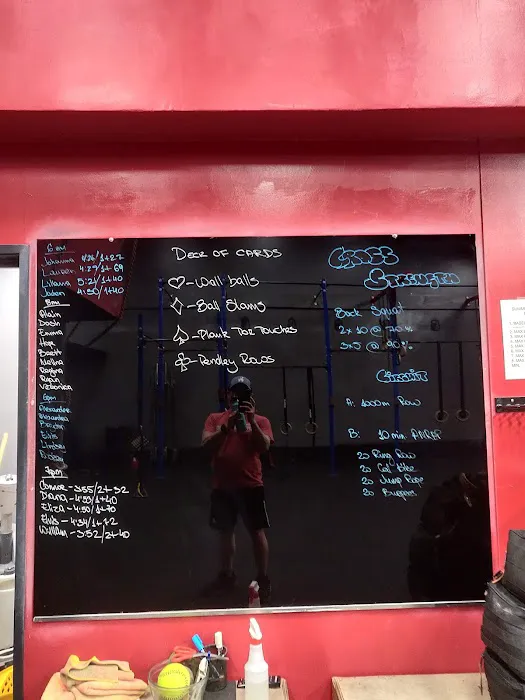 6am
Johanna 4:26/1+27
Lauren 4:29/1+69
Liliana 5:21/1+40
Jaden 4:50/1+40
8am
Alain
Dash
Emma
Hope
Brett
Regina
Ryan
Veronica
6pm
Alexandra
Ellis
Lindsey
7pm
Connor - 3:55/2+32
Diana - 4:55/1+40
Eliza - 4:50/1+70
Ellis - 4:34/1+72
William - 3:52/2+40
DECK OF CARDS
♡ - Wall balls
♢ - Ball Slams
♤ - Plank Toe Touches
♧ - Pendley Rows
Strength
Back Squat
2x10 @ 70%
3x5 @ 90%
Circuit
A: 1000m Row
B: 10 min AMRAP
20 Ring Row
20
20 Jump Rope
20 Burpees